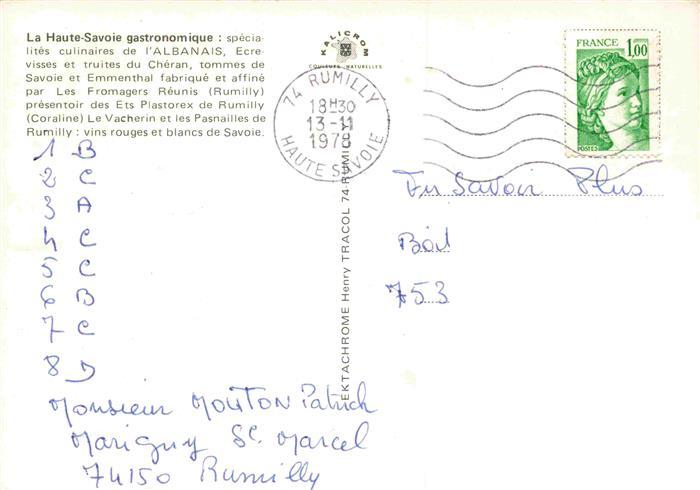 La Haute-Savoie gastronomique : spécia-
lités culinaires de l'ALBANAIS, Ecre-
visses et truites du Chéran, tommes de
Savoie et Emmenthal fabriqué et affiné
par Les Fromagers Réunis (Rumilly)
présentoir des Ets Plastorex de Rumilly
(Coraline) Le Vacherin et les Pasnailles de
Rumilly : vins rouges et blancs de Savoie.
KALICROM
COULEURS NATURELLES
74 RUMILLY
18H30
13-11
1978
HAUTE SAVOIE
FRANCE
1,00
POSTES
1 B
2 C
3 A
4 C
5 C
6 B
7 C
8 D
EKTACHROME Henry TRACOL 74-RUMILLY
En Savoir Plus
753
Monsieur MOUTON Patrick
Marigny St Marcel
74150 Rumilly